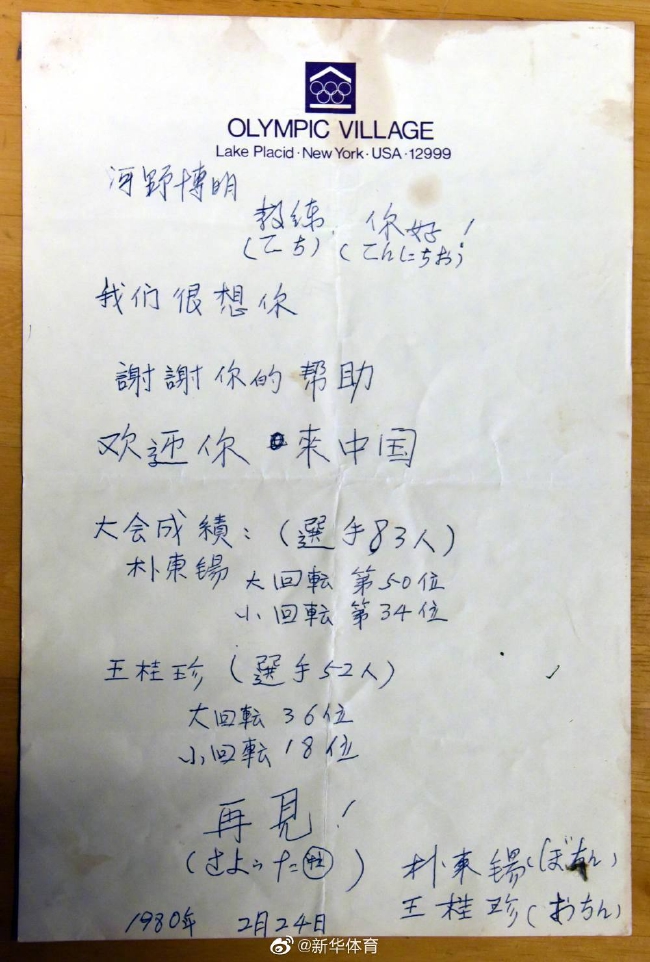 OLYMPIC VILLAGE
Lake Placid · New York · USA · 12999
河野博明
教练, 你好!
(こち) (こんにちわ)
我们很想你
謝謝你的帮助
欢迎你 来中国
大会成績: (選手83人)
朴東锡 大回転 第50位
小回転 第34位
王桂珍 (選手52人)
大回転 36位
小回転 18位
再見!
(さよ
朴東锡(ぼちん)
王桂珍(おちん)
1980年 2月24日
@新华体育